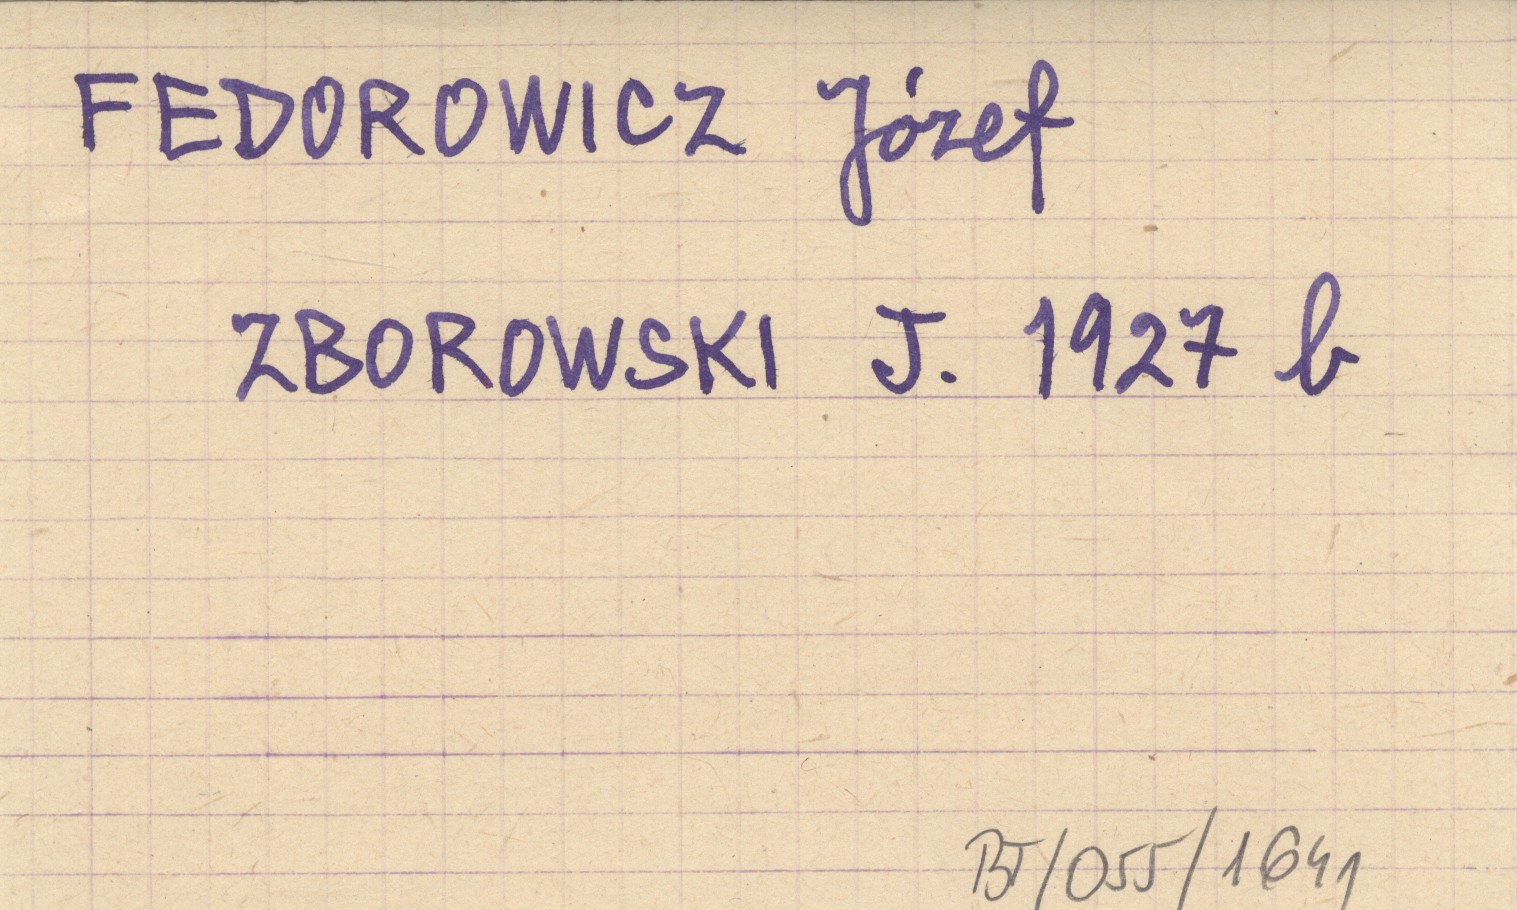 FEDOROWICZ Józef
ZBOROWSKI J. 1927 b
BJ/055/1641